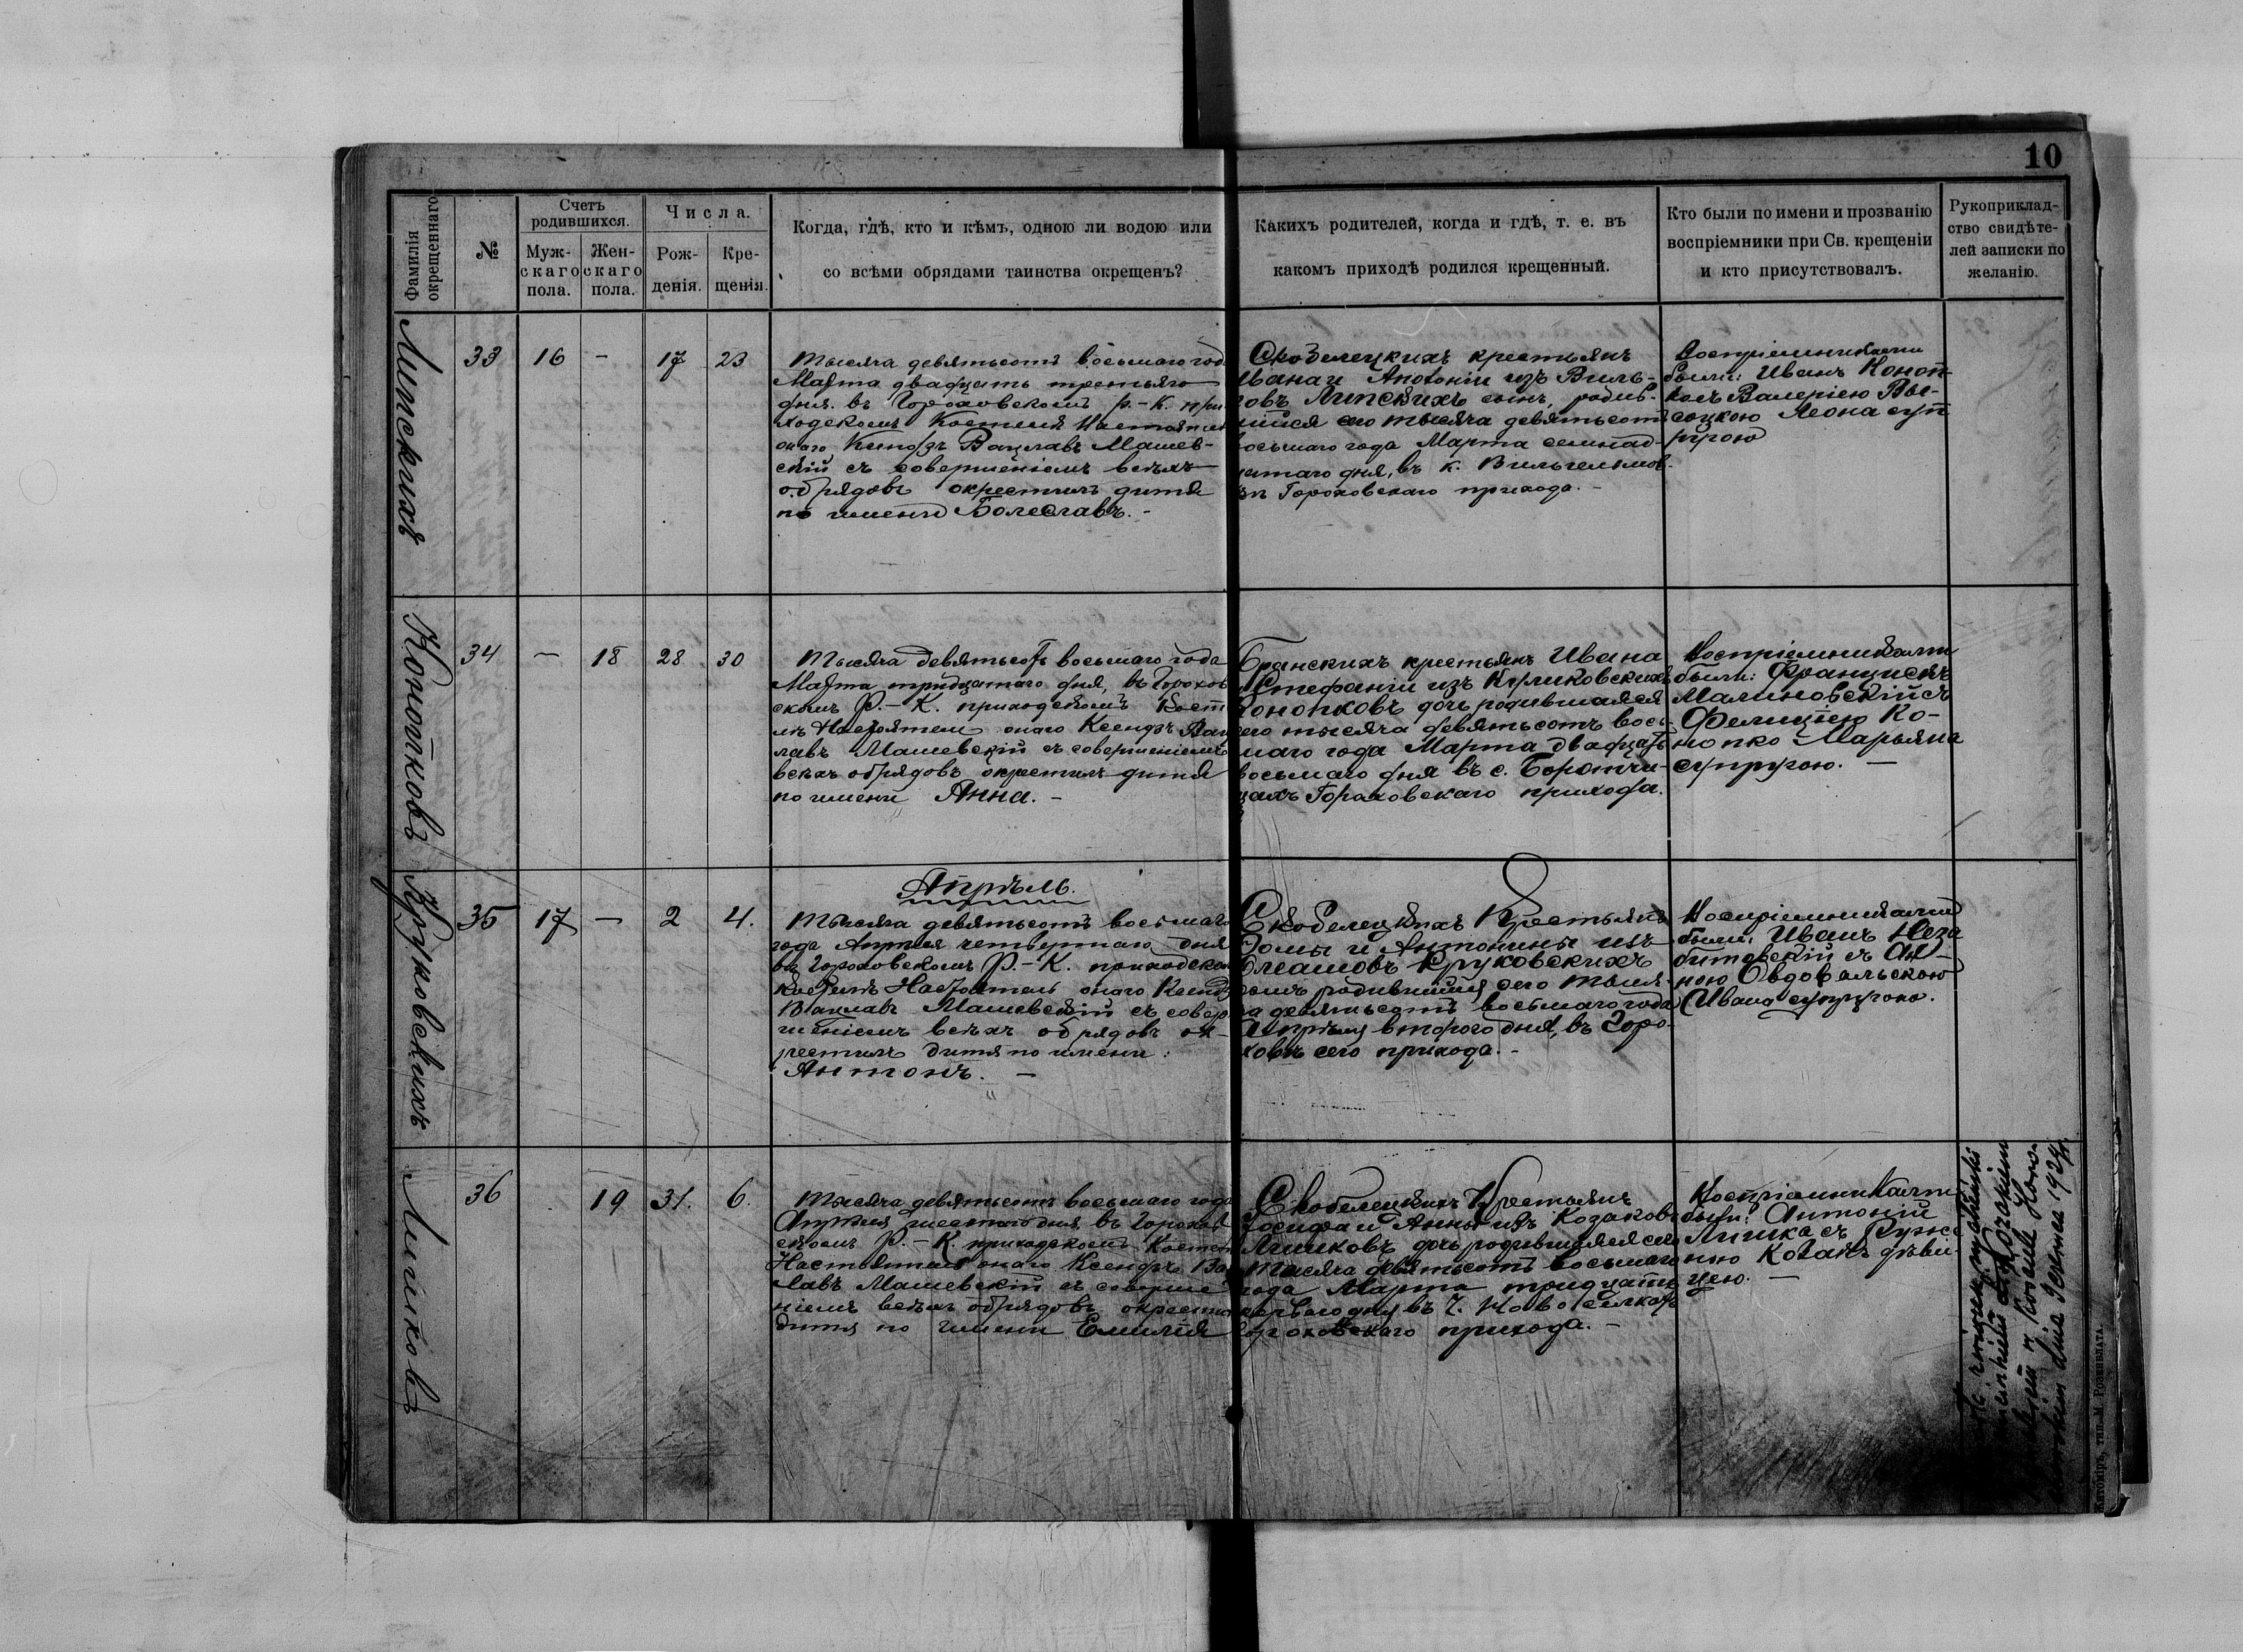 10
Фамилія окрещеннаго
№
Счетъ родившихся.
Муж-скаго пола.
Жен-скаго пола.
Числа.
Рож-денія.
Кре-щенія.
Когда, гдѣ, кто и кѣмъ, одною ли водою или
со всѣми обрядами таинства окрещенъ?
Какихъ родителей, когда и гдѣ, т. е. въ
какомъ приходѣ родился крещенный.
Кто были по имени и прозванію
воспріемники при Св. крещеніи
и кто присутствовалъ.
Рукоприклад-
ство свидѣте-
лей записки по
желанію.
Липскихъ
33
16
—
17
23
Тысяча девятьсотъ восьмаго года
Марта двадцать третьяго
дня въ Гороховскомъ р.-к. при
ходскомъ Костелѣ Настоятель
онаго Ксендзъ Вацлавъ Машев-
скій съ совершеніемъ всѣхъ
обрядовъ окрестилъ дитя
по имени Болеславъ. -
Скобелецкихъ крестьянъ
Ивана и Аполоніи изъ
Липскихъ сынъ, родив-
шійся сего тысяча девятьсотъ
восьмаго года Марта семнад-
цатаго дня, въ к. Вильгельмов-
Гороховскаго прихода. -
Воспріемниками
были: Иванъ Коноп-
ко съ Валеріею Вы-
соцкою Леона суп
ругою
Конопковъ
34
—
18
28
30
Тысяча девятьсотъ восьмаго года
Марта тридцатаго дня, въ Горохов
скомъ Р.-К. приходскомъ Косте
лѣ Настоятель онаго Ксендзъ Вац
лавъ Машевскій съ совершеніемъ
всѣхъ обрядовъ окрестилъ дитя
по имени Анна. -
Бранскихъ крестьянъ Ивана
и Стефаніи изъ Куликовскихъ
Конопковъ дочь родившаяся
сего тысяча девятьсотъ вось-
маго года Марта двадцать
восьмаго дня въ с. Боротчи-
цахъ Гороховскаго прихода.
Воспріемниками
были: Францискъ
Малиновскій съ
Фелиціею Ко-
нопко Марьяна
супругою. —
Круковскихъ
35
17
—
2
4.
Апрѣль.
Тысяча девятьсотъ восьмаго
года Апрѣля четвертаго дня
въ Гороховскомъ Р.-К. приходском
костелѣ Настоятель онаго Ксендзъ
Вацлавъ Машевскій съ совер
шеніемъ всѣхъ обрядовъ ок-
рестилъ дитя по имени:
Антонъ. —
Скобелецкихъ Крестьянъ
Фомы и Антонины изъ
Круковскихъ
сынъ родившійся сего тыся
ча девятьсотъ восьмаго года
Апрѣля второго дня, въ Горо-
ховѣ сего прихода. -
Воспріемниками
были: Иванъ Неза
битовскій съ Ан-
ною Овдовальскою
Ивана супругою.
Лишковъ
36
19
31.
6.
Тысяча девятьсотъ восьмаго года
Апрѣля шестого дня въ Горохов
скомъ Р.-К. приходскомъ Костел
Настоятель онаго Ксендзъ Вац
лавъ Машевскій съ соверше
ніемъ всѣхъ обрядовъ окрестил
дитя по имени Емилія
Скобелецкихъ Крестьянъ
Іосифа и Анны изъ Козаковъ
Лишковъ дочь родившаяся сего
тысяча девятьсотъ восьмаго
года Марта тридцать
перваго дня въ Ч. Новоселкахъ
Гороховскаго прихода. -
Воспріемниками
были: Антоній
Лишка съ Руже
ною Козакъ дѣви-
цею. —
związek małżeński
1929 r.
Житоміръ, тип. М. Розенблата.